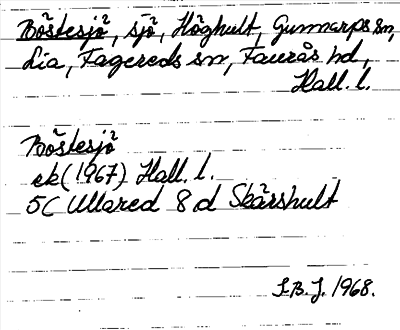 Böstesjö, sjö, Höghult, Gunnarps sn,
Lia, Fagereds sn, Faurås hd,
Hall. l.
Böstesjö
ek (1967) Hall. l.
5C Ullared 8 d Skärshult
S.B.J. 1968.